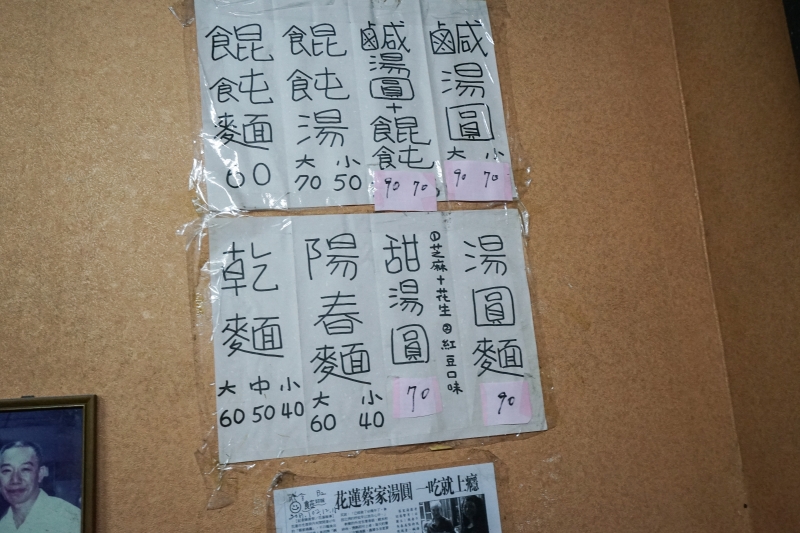 鹹湯圓
大 小
90 70
鹹湯圓+餛飩
90 70
餛飩湯
大 小
70 50
餛飩麵
60
湯圓麵
90
甜湯圓
①芝麻+花生 ②紅豆口味
70
陽春麵
大 小
60 40
乾麵
大 中 小
60 50 40
花蓮蔡家湯圓 一吃就上癮